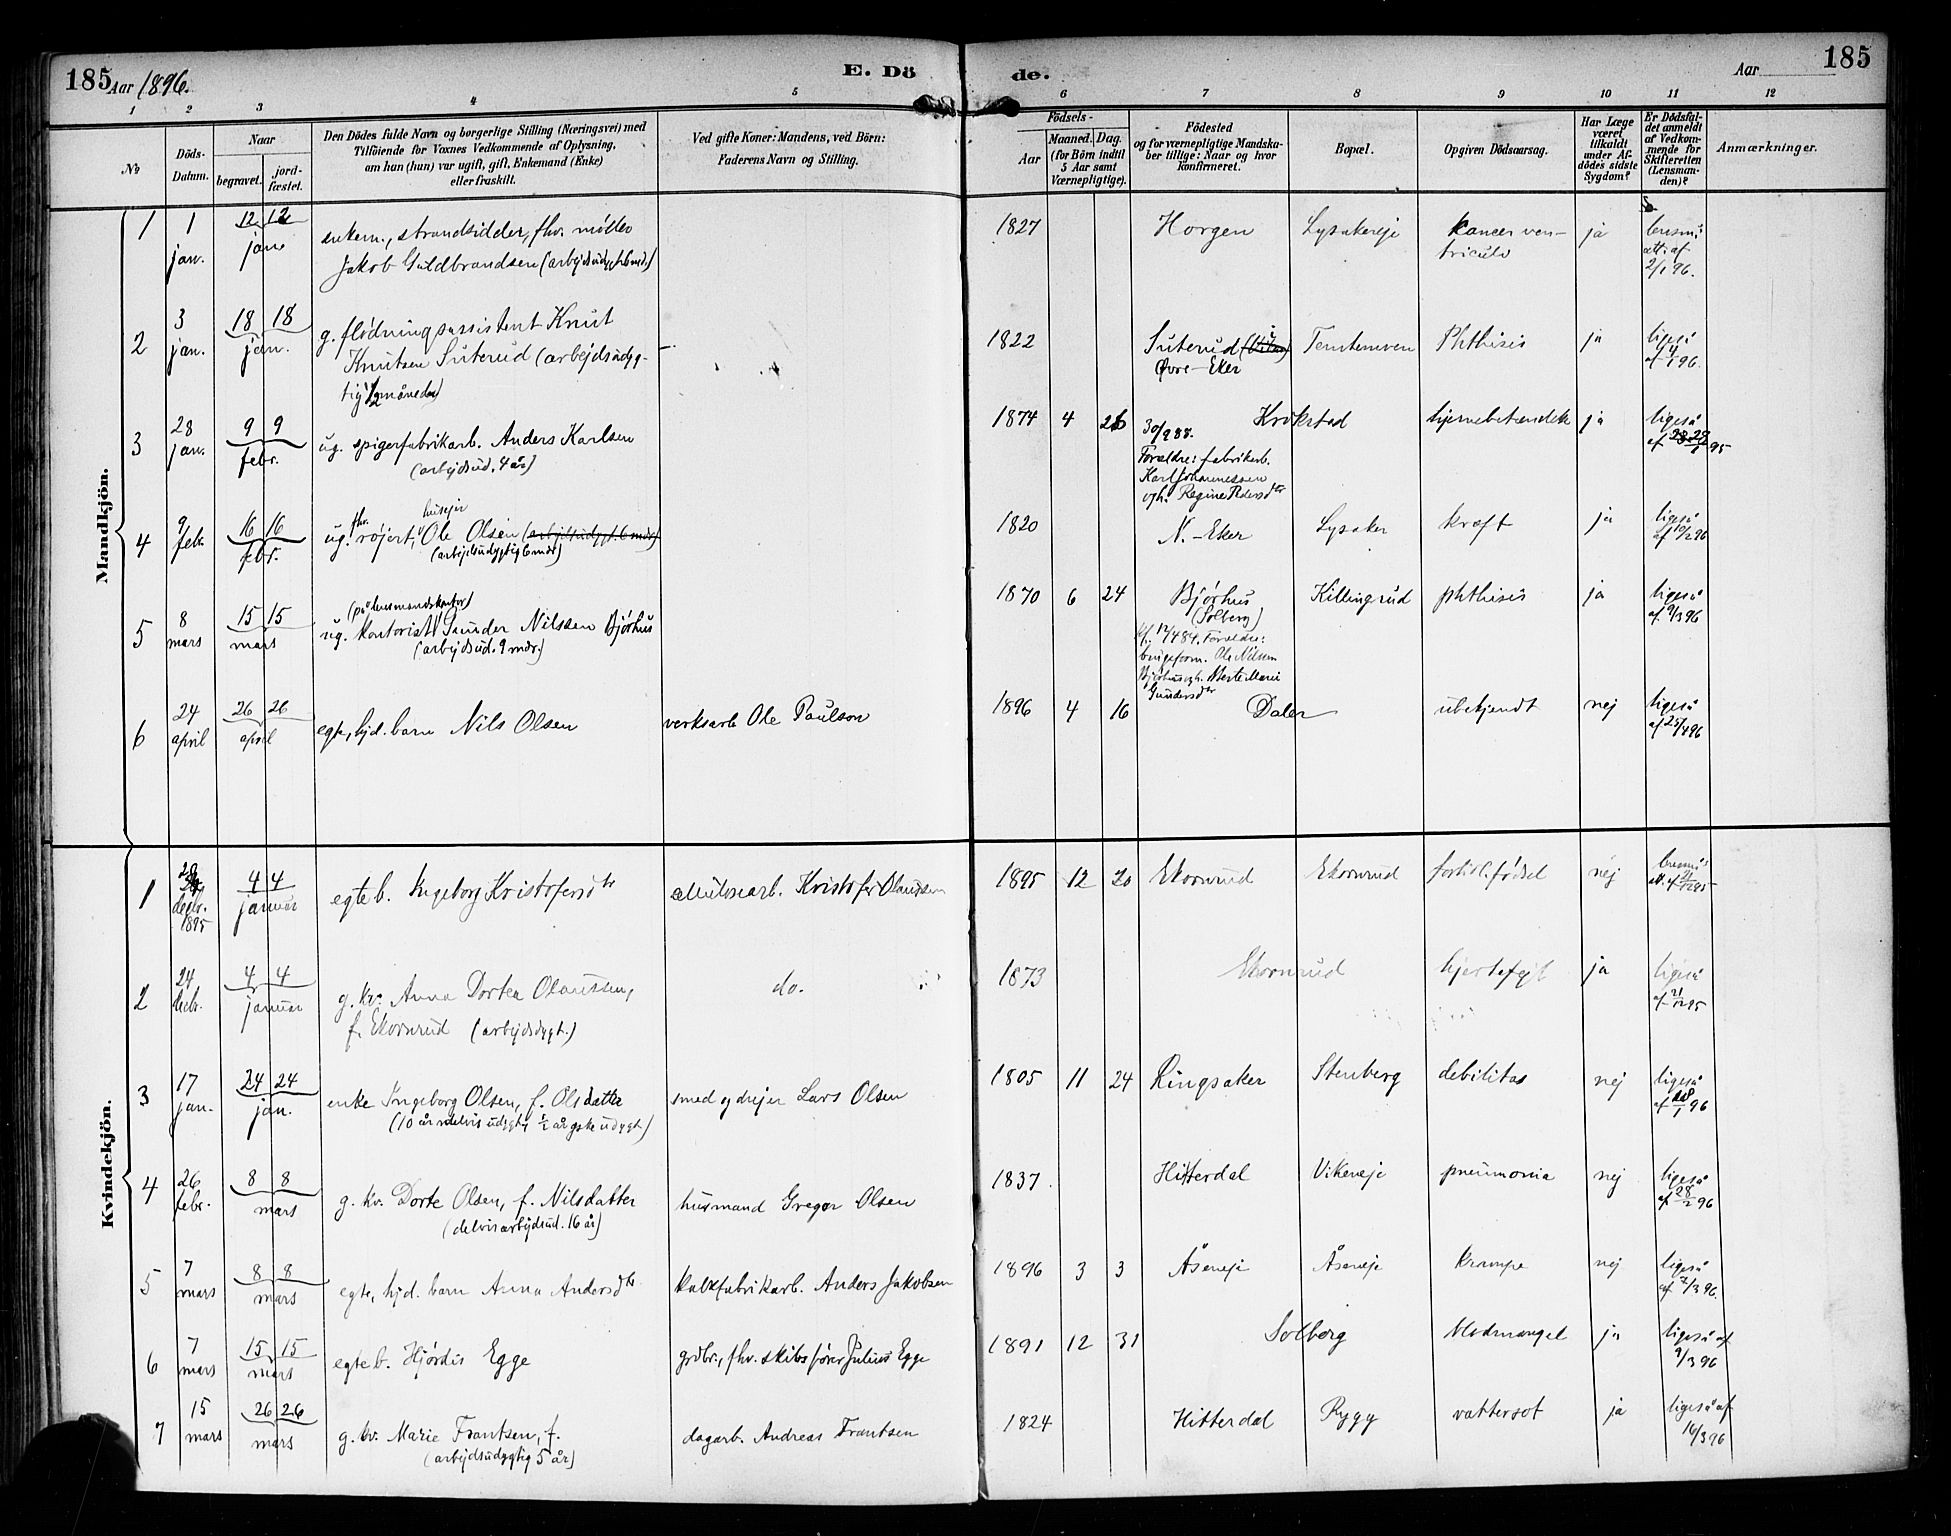 185 Aar 1896.
E. Dö
de.
Aar
185
1 2 3 4 5 6 7 8 9 10 11 12
No
Döds-
Datum.
Naar
begravet.
jord-
fæstet.
Den Dödes fulde Navn og borgerlige Stilling (Næringsvei) med
Tilföiende for Voxnes Vedkommende af Oplysning,
om han (hun) var ugift, gift, Enkemand (Enke)
eller fraskilt.
Ved gifte Koner: Mandens, ved Börn:
Faderens Navn og Stilling.
Födsels-
Aar
Maaned. Dag.
(for Börn indtil
5 Aar samt
Værnepligtige).
Födested
og for værnepligtige Mandska-
ber tillige: Naar og hvor
konfirmeret.
Bopæl.
Opgiven Dödsaarsag.
Har Læge
været
tilkaldt
under Af-
dödes sidste
Sygdom?
Er Dödsfal-
det anmeldt
af Vedkom-
mende for
Skifteretten
(Lensman-
den)?
Anmærkninger.
Mandkjön.
1 1 jan. 12 12 jan.
enkem., strandsidder, fhv. møller
Jakob Guldbrandsen (arbejdsudygt. 6 md.)
1827 Horgen Lysakereje kancer ven-
triculo ja lensm.s
att. af
2/1 96.
2 3 jan. 18 18 jan.
g. flødningsassistent Knut
Knutsen Suterud (arbejdsudyg-
tig 1/2 måneder)
1822 Suterud
Øvre-Eker
Phthisis ja ligeså
af 4/1 96.
3 28 jan. 9 9 febr.
ug. spigerfabrikarb. Anders Karlsen
(arbejdsud. 4 år)
1874 4 26 30/9 88.
Forældre: fabrikarb.
Karl Johannessen
og h. Regine Pedersdtr
Krokstad hjernebetændelse ja ligeså
af 29/1 95
4 9 febr. 16 16 febr.
ug. fhv. røjert, husejer Ole Olsen (arbejdsudygt. 6 mdr)
(arbejdsudygtig 6 mdr)
1820 N.-Eker Lysaker kræft ja ligeså
af 10/2 96
5 8 mars 15 15 mars
(på lensmandskontor)
ug. kontorist Gunder Nilsen Bjørhus
(arbejdsud. 9 mdr.)
1870 6 24 Bjørhus
(Solberg)
12/4 84. Forældre:
brugsform. Ole Nilsen
Bjørhus og h. Berte Marie
Gundersdtr
Killingrud phthisis ja ligeså
af 9/3 96
6 24 april 26 26 april
egte, hjd. barn Nils Olsen
verksarb Ole Paulson
1896 4 16 Daler ubekjendt nej ligeså
af 25/4 96
Kvindekjön.
1 28 decbr. 1895 4 4 januar
egte b. Ingeborg Kristofersdtr
cellulosearb. Kristofer Olaussen
1895 12 20 Ekornrud Ekornrud fortidl. fødsel nej lensm.s
att. af 31/12 95
2 24 decbr. 4 4 januar
g. kv. Anna Dortea Olaussen,
f. Ekornrud (arbejdsdygt.)
do.
1873 Ekornrud hjertefejl ja ligeså
af 31/12 95
3 17 jan. 24 24 jan.
enke Ingeborg Olsen, f. Olsdatter
(10 år delvis udygt., 1/2 år ganske udygt.)
smed og drejer Lars Olsen
1805 11 24 Ringsaker Stenberg debilitas nej ligeså
af 18/1 96
4 26 febr. 8 8 mars
g. kv. Dorte Olsen, f. Nilsdatter
(delvis arbejdsud. 16 år)
husmand Gregar Olsen
1837. Hitterdal Vikeneje pneumonia nej ligeså
af 28/2 96
5 7 mars 8 8 mars
egte, hjd. barn Anna Andersdtr
kalkfabrikarb. Anders Jakobsen
1896 3 3 Åseneje Åseneje krampe nej ligeså
af 7/3 96.
6 7 mars 15 15 mars
egte b. Hjørdis Egge
grdbr., fhv. skibsfører Julius Egge
1891 12 31 Solberg blodmangel ja ligeså af
9/3 96
7 15 mars 26 26 mars
g. kv. Marie Frantsen, f.
(arbejdsudygtig 5 år)
dagarb. Andreas Frantsen
1824 Hitterdal Rygg vattersot ja ligeså af
16/3 96